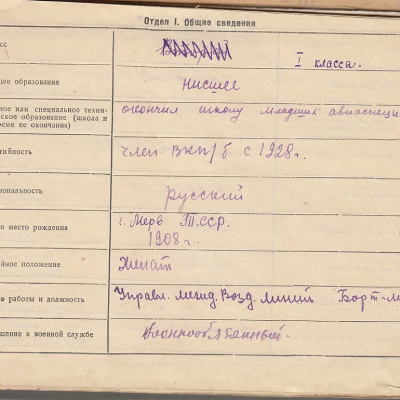 Отдел I. Общие сведения
сс
I класса.
щее образование
низшее
ное или специальное техни-
ческое образование (школа и
время ее окончания)
окончил школу младших авиаспец
тийность
член ВКП/б с 1928 г.
ональность
русский
и место рождения
г. Мерв Т.ССР.
1908 г.
йное положение
Женат
о работы и должность
Управл. межд. Возд. Линий Борт-м
ошение к военной службе
Военнообязанный.